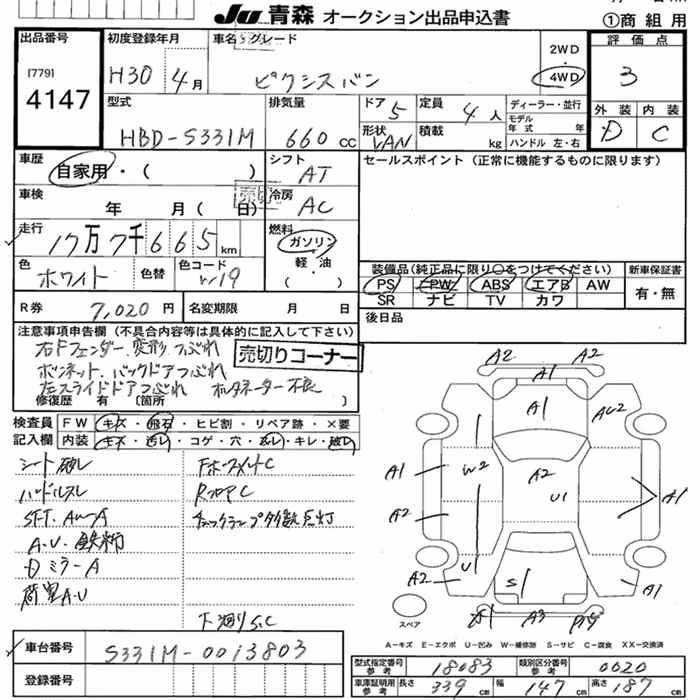 Ju 青森 オークション出品申込書 ①商組用
出品番号
[779]
4147
初度登録年月 車名・グレード
H30 4月 ピクシスバン
2WD
4WD
評価点
3
外装 内装
D C
型式 排気量 ドア 5 定員 4人
HBD-S331M 660cc 形状 VAN 積載 kg
ディーラー・並行
モデル年式 年式
ハンドル 左・右
車歴 自家用・( ) シフト AT
セールスポイント (正常に機能するものに限ります)
車検 年 月( 日) 売切 冷房 AC
走行 17万7千665km 燃料 ガソリン
軽・油
( )
色 ホワイト 色替 色コード W19
装備品(純正品に限り○をつけてください) 新車保証書
PS PW ABS エアB AW 有・無
SR ナビ TV カワ
R券 7,020円 名変期限 月 日 後日品
注意事項申告欄 (不具合内容等は具体的に記入して下さい)
右Fフェンダー変形つぶれ 売切りコーナー
ボンネット、バックドアつぶれ
左スライドドアつぶれ オルタネーター不良
修復歴 有 〔箇所 〕
検査員記入欄 FW キズ・飛石・ヒビ割・リペア跡・×要
内装 キズ・汚レ・コゲ・穴・スレ・キレ・破レ
シート破レ
ハンドルスレ RフロアC
SFT.AW-A チェックランプ多数点灯
A.U.
DミラーA
荷室A.U
下廻りS.C
A2 A2
A1
A1
A2
A1 W2 A2 U1 A1
A2
U1
A2 S A1
A3
スペア
A－キズ E－エクボ U－凹み W－補修跡 S－サビ C－腐食 XX－交換済
車台番号 S331M-0013803
登録番号
型式指定番号参考 18083 類別区分番号参考 0020
車庫証明用参考 長さ 339cm 幅 147cm 高さ 187cm